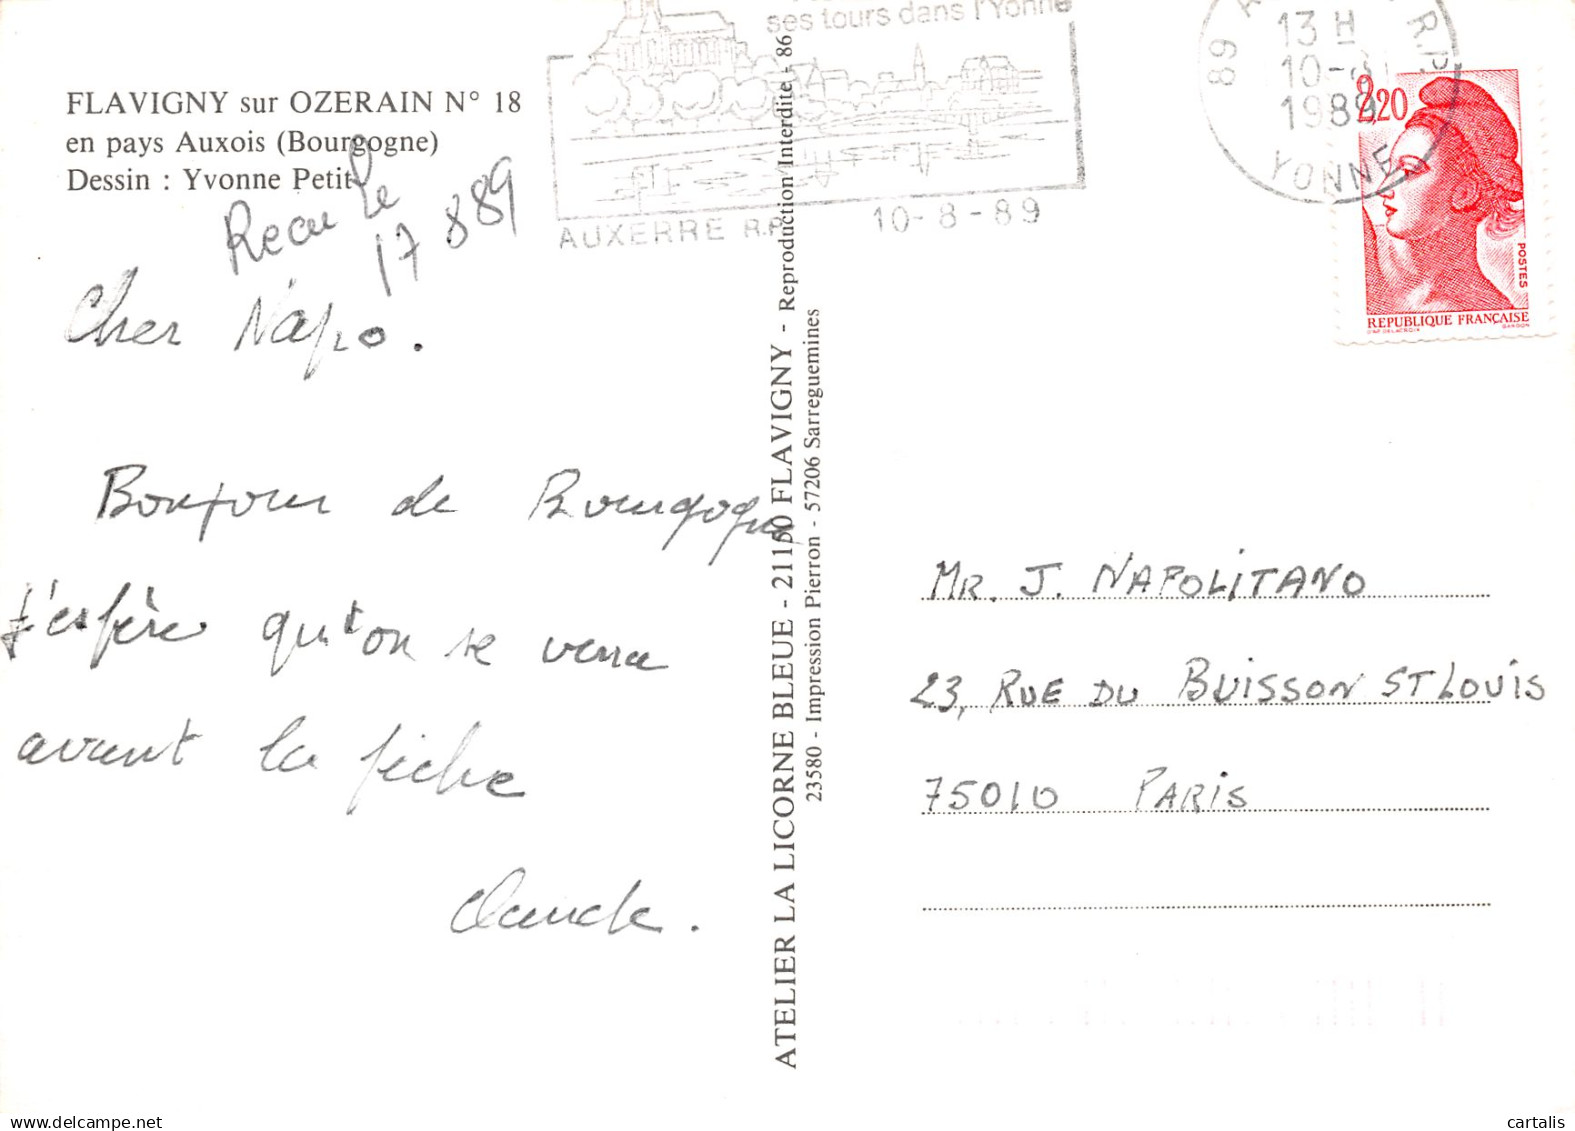 FLAVIGNY sur OZERAIN N° 18
en pays Auxois (Bourgogne)
Dessin : Yvonne Petit
Recu le
17 8 89
Cher Napo.
Bonjour de Bourgogne
J'espère qu'on se verra
avant la
Claude.
ses tours dans l'Yonne
AUXERRE R.P.
10-8-89
89 R.P.
13 H
10-8
1989
YONNE
2,20
POSTES
REPUBLIQUE FRANÇAISE
D'AP. DELACROIX GANDON
ATELIER LA LICORNE BLEUE - 21150 FLAVIGNY - Reproduction Interdite - 86
23580 - Impression Pierron - 57206 Sarreguemines
MR. J. NAPOLITANO
23, RUE DU BUISSON ST LOUIS
75010 PARIS
cartalis